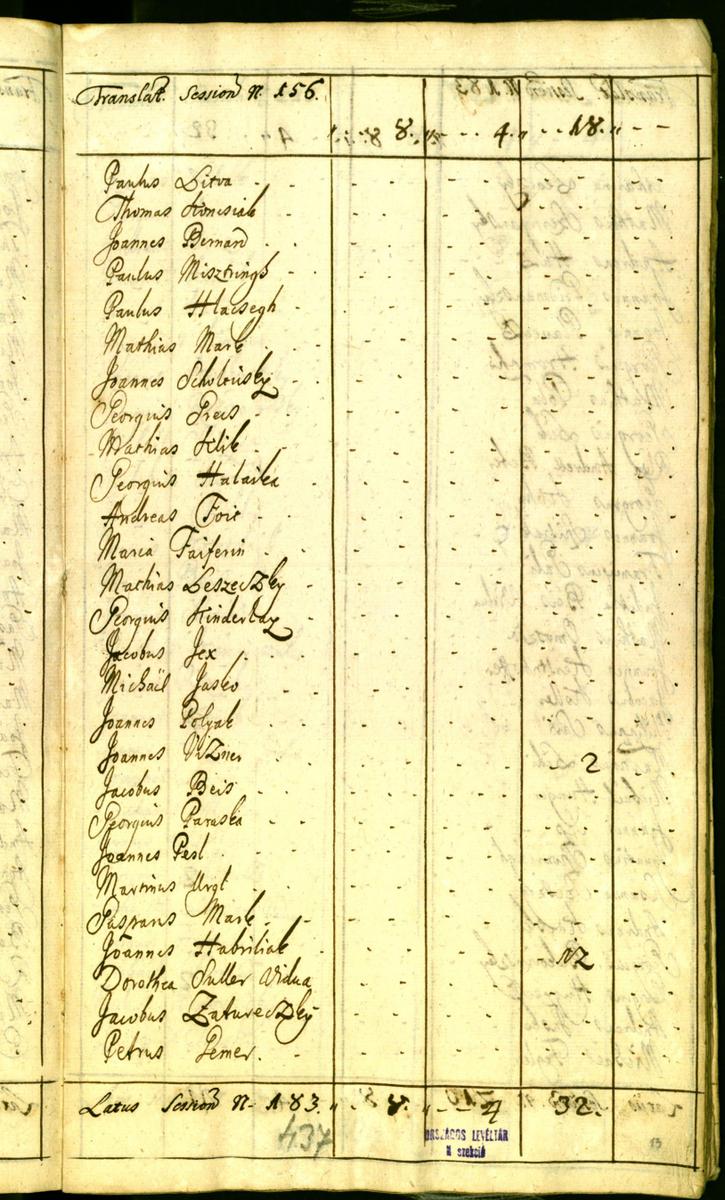 Translat. Session N. 156.
8. 4. 18.
Paulus Litva
Thomas Konesiak
Joannes Bernard
Paulus Misztringh
Paulus Hlacsegh
Mathias Mark
Joannes
Georgius Preis
Mathias Klik
Georgius Halaska
Andreas Foit
Maria Faiferin
Mathias Leszeczky
Georgius Kinderlaz
Jacobus Jex
Michaël Jasko
Joannes Polyak
Joannes Vizner 2
Jacobus Beis
Georgius Paraska
Joannes Pesl
Martinus Urgl
Gasparus Mark
Joannes Habriliak 12
Dorothea Suller Vidua
Jacobus Zatureczky
Petrus Pemer.
Latus Session N. 183. 8. 4 32.
437
ORSZÁGOS LEVÉLTÁR
N szekció
13